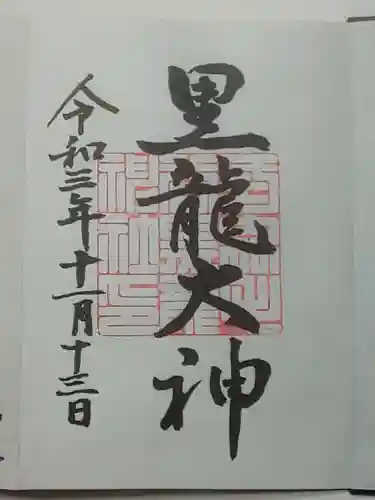 黒龍大神
令和三年十一月十三日